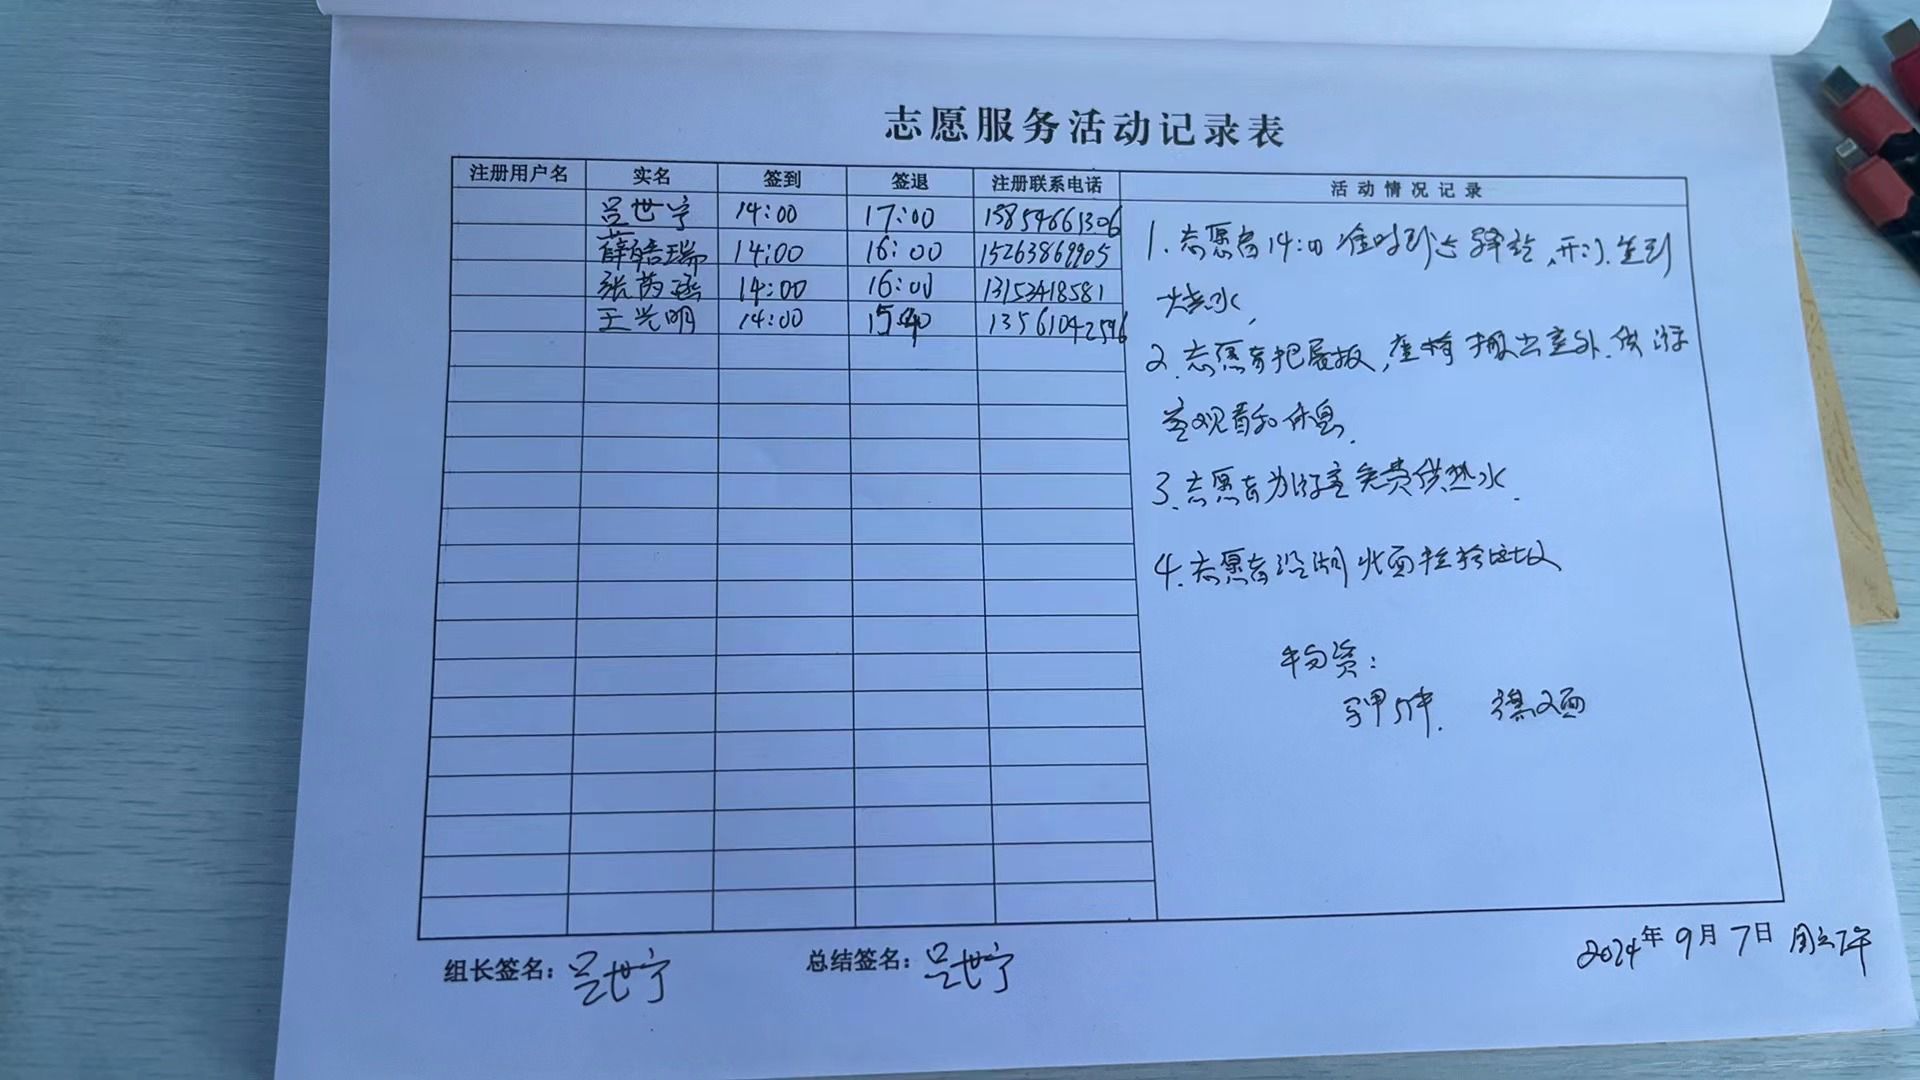 志愿服务活动记录表
注册用户名 实名 签到 签退 注册联系电话 活动情况记录
吕世宁 14:00 17:00 15854661306
薛皓瑞 14:00 16:00 15263869905
张芮涵 14:00 16:00 13153418581
王兴明 14:00 13561042596
1.志愿者14:00准时到达驿站,开门.签到
烧水,
2.志愿者把展板,座椅搬出室外.供游
客观看和休息.
3.志愿者为游客免费供热水.
4.志愿者沿湖北面捡拾垃圾
物资:
马甲5件.
组长签名:吕世宁 总结签名:吕世宁
2024年9月7日 周六下午